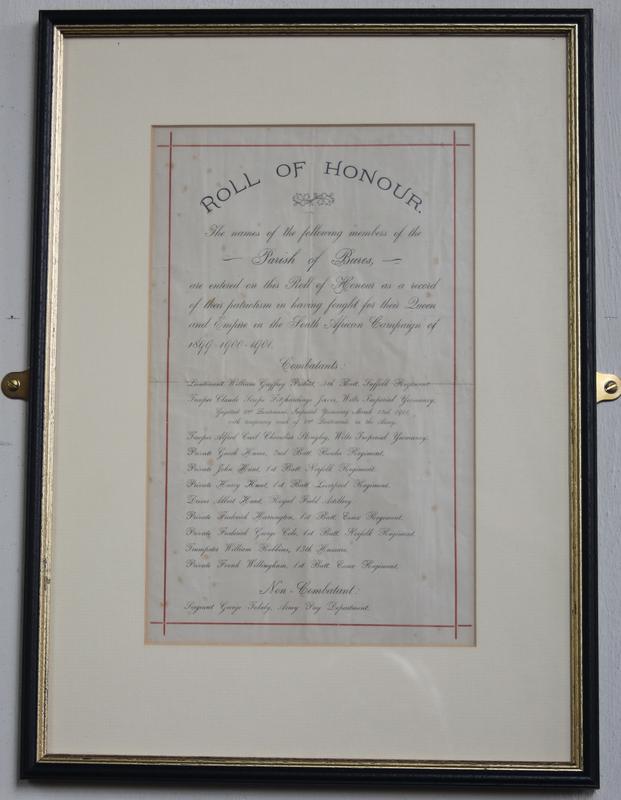 ROLL OF HONOUR.
The names of the following members of the
— Parish of Bures, —
are entered on this Roll of Honour as a record
of their patriotism in having fought for their Queen
and Empire in the South African Campaign of
1899-1900-1901.
Combatants:
Lieutenant William Probert, 5th Batt. Suffolk Regiment.
Trooper Claude Scrope Fitzhardinge Jarvis, Wilts Imperial Yeomanry.
Gazetted 2nd Lieutenant, Imperial Yeomanry March 23rd, 1901,
with temporary rank of 2nd Lieutenant in the Army.
Trooper Alfred Cecil Chevallier Wilts Imperial Yeomanry.
Private Hume, 2nd Batt. Border Regiment.
Private John Hunt, 1st Batt. Norfolk Regiment.
Private Harry Hunt, 1st Batt. Liverpool Regiment.
Driver Albert Hunt, Royal Field Artillery.
Private Frederick Harrington, 1st Batt. Essex Regiment.
Private Frederick George Cole, 1st Batt. Norfolk Regiment.
Trumpeter William Robbins, 13th Hussars.
Private Frank Willingham, 1st Batt. Essex Regiment.
Non-Combatant:
Sergeant George Army Pay Department.